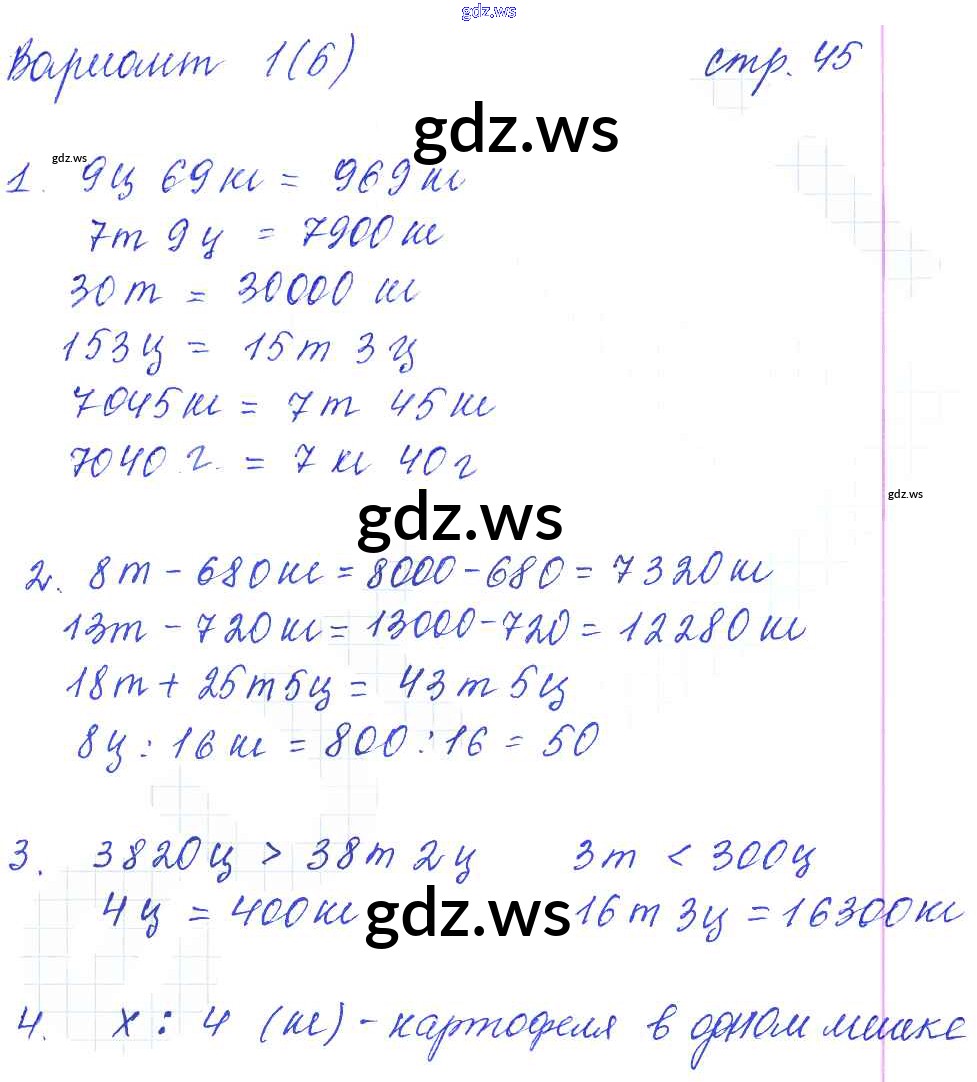 gdz.ws
Вариант 1(6) стр. 45
gdz.ws
gdz.ws
1. 9ц 69кг = 969кг
7т 9ц = 7900кг
30т = 30000 кг
153ц = 15т 3ц
7045кг = 7т 45кг
7040 г. = 7 кг 40г
gdz.ws
gdz.ws
2. 8т - 680кг = 8000 - 680 = 7320кг
13т - 720кг = 13000 - 720 = 12280кг
18т + 25т5ц = 43т 5ц
8ц : 16кг = 800 : 16 = 50
3. 3820ц > 38т 2ц 3т < 300ц
4ц = 400кг 16т 3ц = 16300кг
gdz.ws
4. х : 4 (кг) - картофеля в одном мешке